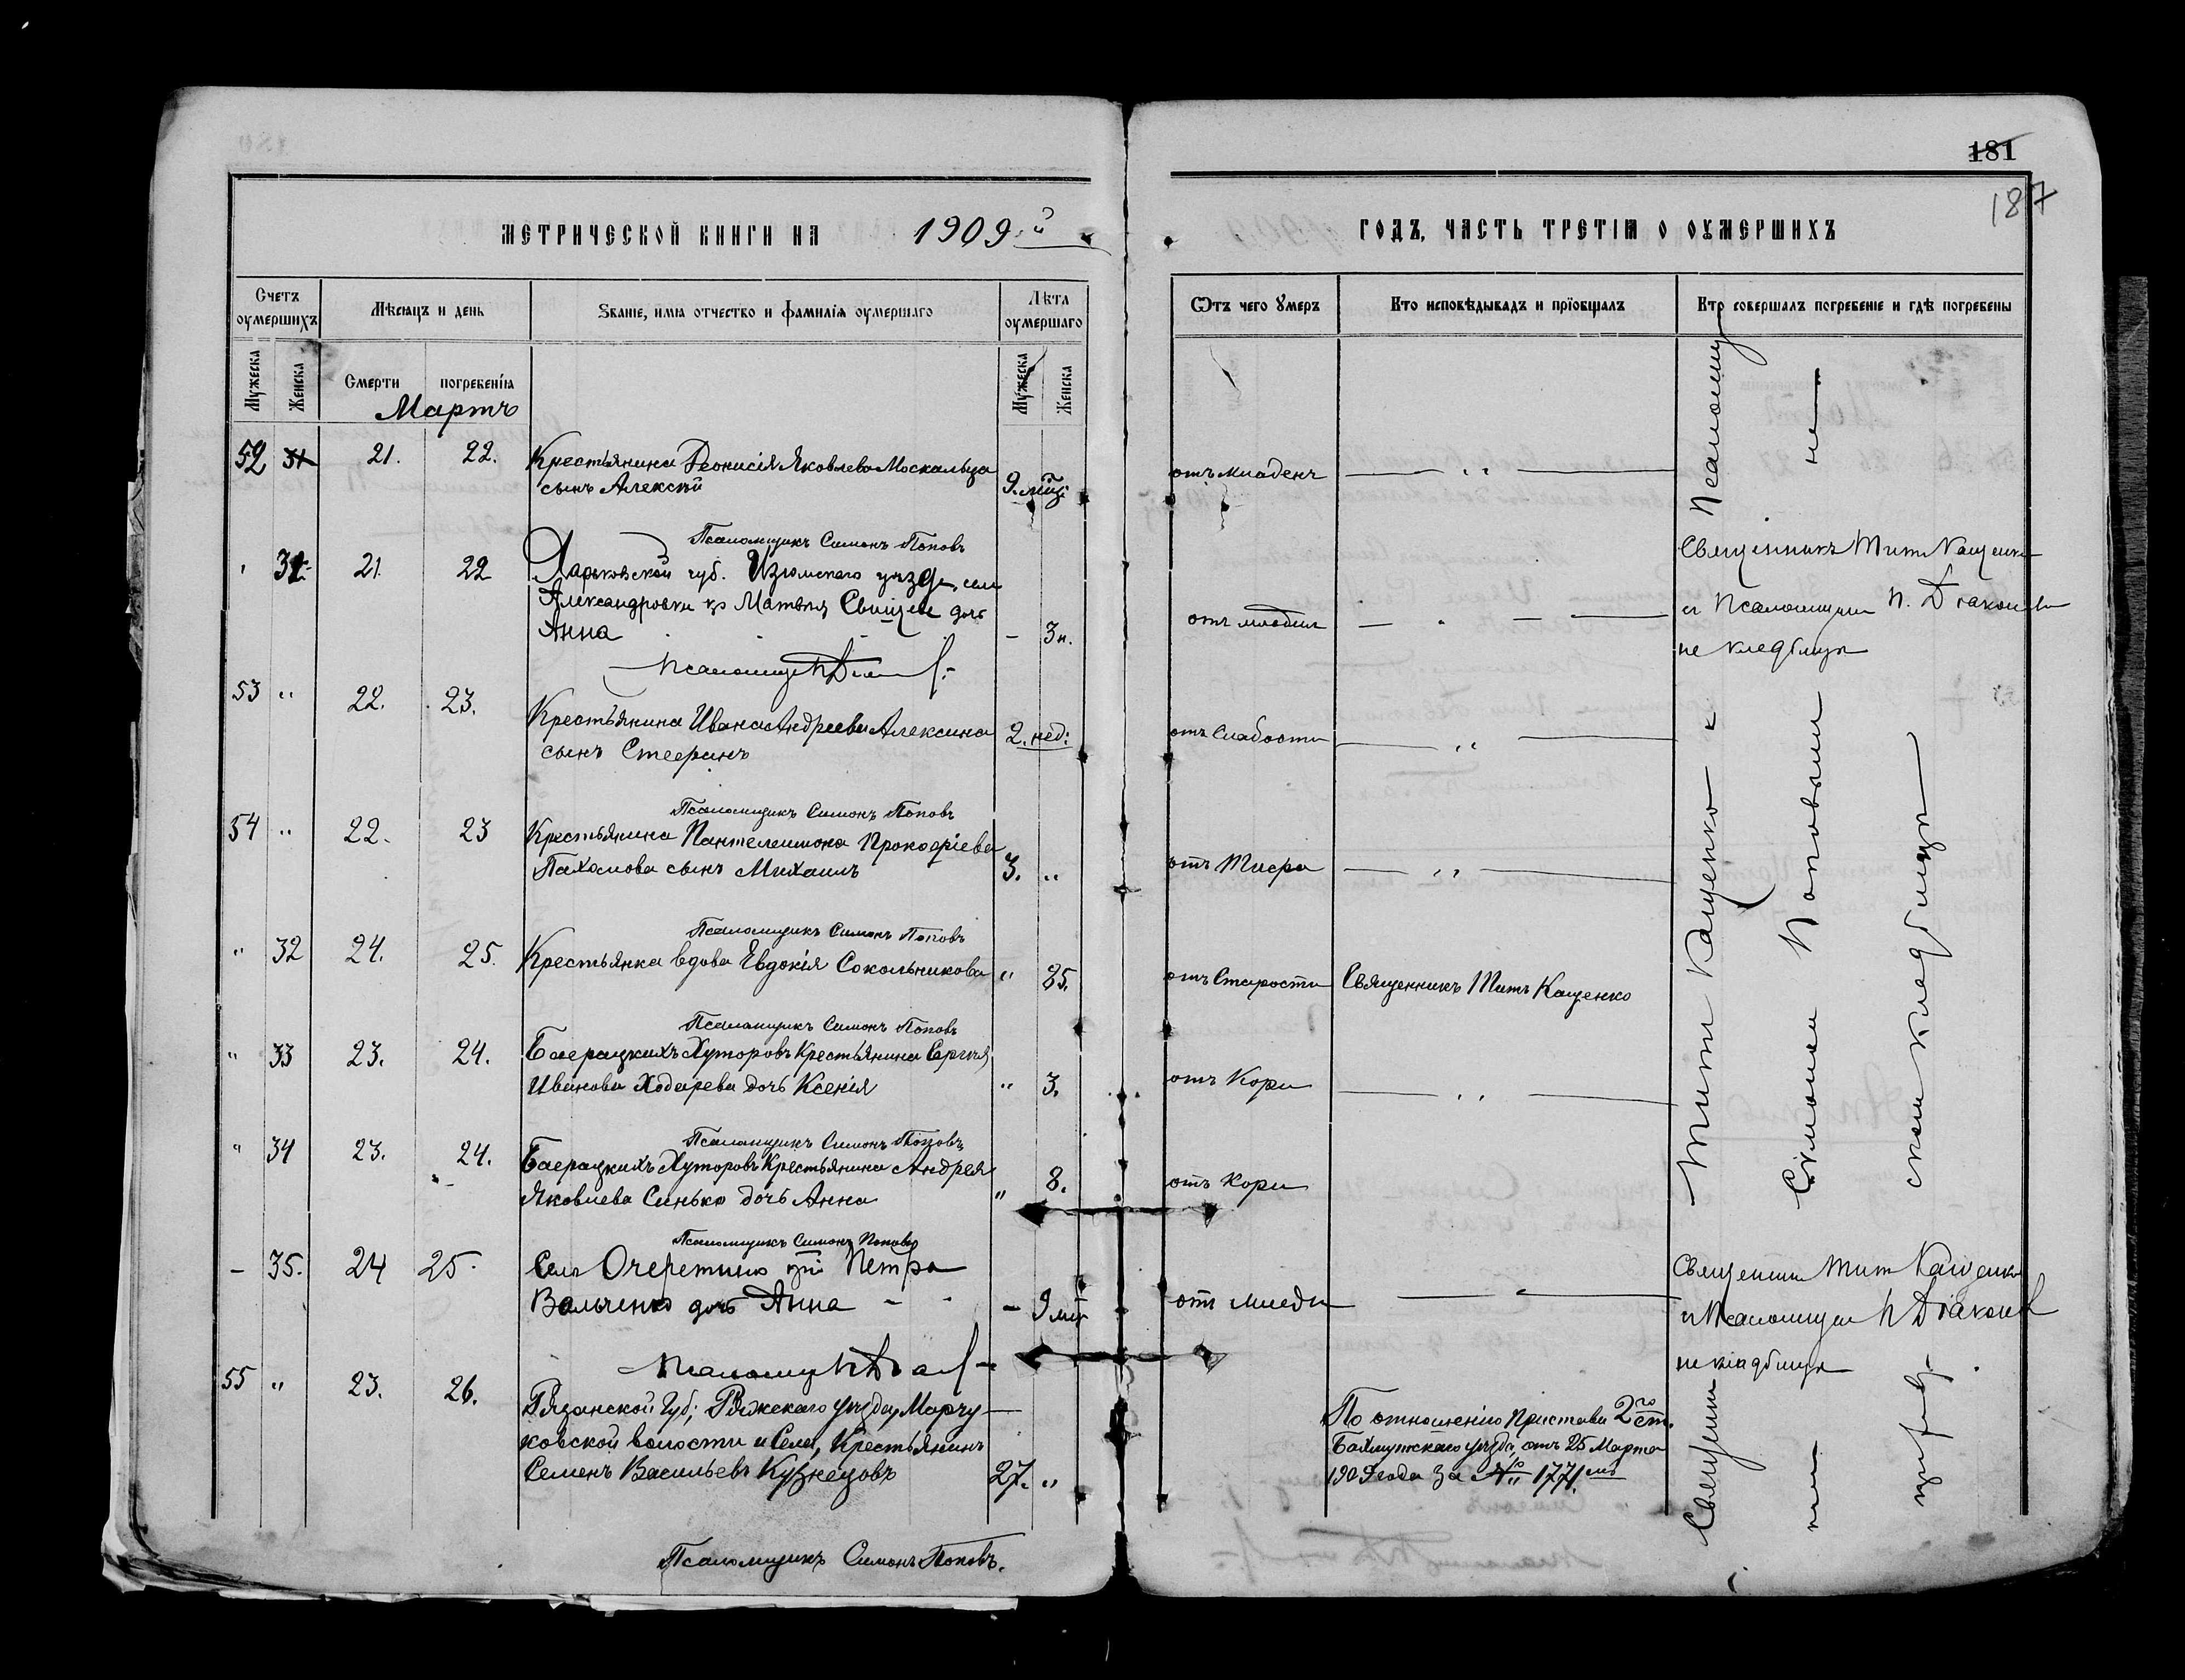 181
187
МЕТРИЧЕСКОЙ КНИГИ НА 1909й ГОДЪ, ЧАСТЬ ТРЕТІѦ О ОУМЕРШИХЪ
Счетъ оумершихъ
Мѣсяцъ и день
Званіе, имя отчество и фамилія оумершаго
Лѣта оумершаго
Ѿтъ чего умеръ
Кто исповѣдывалъ и пріобщалъ
Кто совершалъ погребеніе и гдѣ погребены
Мужеска
Женска
Смерти
погребенія
Мужеска
Женска
Мартъ
52 31 21. 22. Крестьянина Деонисія Яковлева Москальца
сынъ Алексѣй 9. мѣц: отъ младенч — „ —
Псаломщикъ Симонъ Поповъ
31. 21. 22 Харьковской губ. Изюмскаго уѣзда, села
Александровки кр Матвѣя дочь
Анна - 3 н. отъ младен — „ —
Священникъ Титъ Кащенко
и Псаломщикъ П. Дьяконовъ
на кладбищѣ
53 „ 22. 23. Крестьянина Ивана Андреева Алексина
сынъ Стефанъ 2. нед: отъ Слабости — „ —
Псаломщикъ Симонъ Поповъ
54 „ 22. 23 Крестьянина Пантелеимона Прокофіева
Пахомова сынъ Михаилъ 3. „ отъ Тифа — „ —
Псаломщикъ Симонъ Поповъ
„ 32 24. 25. Крестьянка вдова Евдокія Сокольникова „ 85. отъ Старости Священникъ Титъ Кащенко
Псаломщикъ Симонъ Поповъ
„ 33 23. 24. Баерацкихъ Хуторовъ Крестьянина Сергѣя
Иванова Ходарева дочь Ксенія „ 3. отъ Кори — „ —
Псаломщикъ Симонъ Поповъ
„ 34 23. 24. Баерацкихъ Хуторовъ Крестьянина Андрея
Яковлева Синько дочь Анна „ 8. отъ Кори
Псаломщикъ Симонъ Поповъ
Титъ Кащенко и
Симономъ Поповымъ
кладбищѣ
- 35. 24 25. Села Очеретино Петра
Вальченко дочь Анна - 9 мѣ отъ младен — „ —
Священникъ Титъ Кащенко
и Псаломщикъ П Дьяконов
на кладбищѣ
55 „ 23. 26. Рязанской Губ; Ряжскаго уѣзда, Марчу-
ковской волости и Села, Крестьянинъ
Семенъ Васильевъ Кузнецовъ 27. „
По отношенію Пристава 2го ст.
Бахмутскаго уѣзда, отъ 25 Марта
1909 года за № 1771.
Псаломщикъ Симонъ Поповъ.